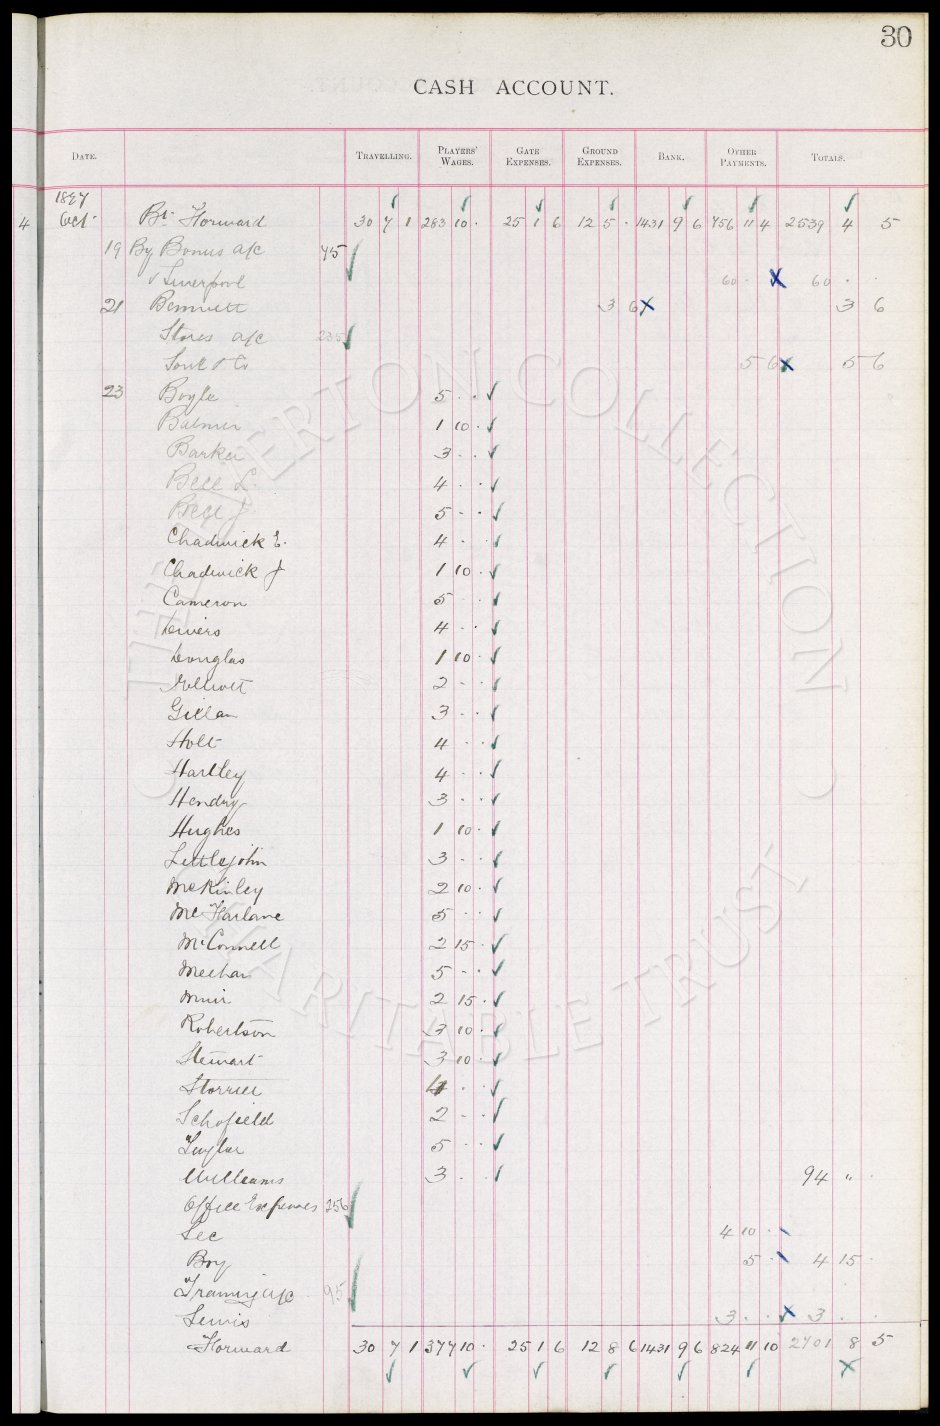 30
CASH ACCOUNT.
DATE. TRAVELLING. PLAYERS' WAGES. GATE EXPENSES. GROUND EXPENSES. BANK. OTHER PAYMENTS. TOTALS.
1897
4 Oct Bt. Forward 30 7 1 283 10 . 25 1 6 12 5 . 1431 9 6 756 11 4 2539 4 5
19 By Bonus a/c 75
" Liverpool 60 . . 60 . .
21 Bennett 3 6 3 6
Stores a/c 235
& Co 5 6 5 6
23 Boyle 5 . .
Balmer 1 10 .
Barker 3 . .
Bell L. 4 . .
Bell J 5 . .
Chadwick E. 4 . .
Chadwick J 1 10 .
Cameron 5 . .
Divers 4 . .
Douglas 1 10 .
Elliott 2 . .
Gillan 3 . .
Holt 4 . .
Hartley 4 . .
Hendry 3 . .
Hughes 1 10 .
Littlejohn 3 . .
McKinley 2 10 .
McFarlane 5 . .
McConnell 2 15 .
Meehan 5 . .
Muir 2 15 .
Robertson 3 10 .
Stewart 3 10 .
Storrier 4 . .
Schofield 2 . .
Taylor 5 . .
Williams 3 . . 94 " .
Office Expenses 256
Sec 4 10 .
Boy 5 . 4 15 .
Training a/c 95
Lewis 3 . . 3 . .
Forward 30 7 1 377 10 . 25 1 6 12 8 6 1431 9 6 824 11 10 2701 8 5
THE EVERTON COLLECTION CHARITABLE TRUST